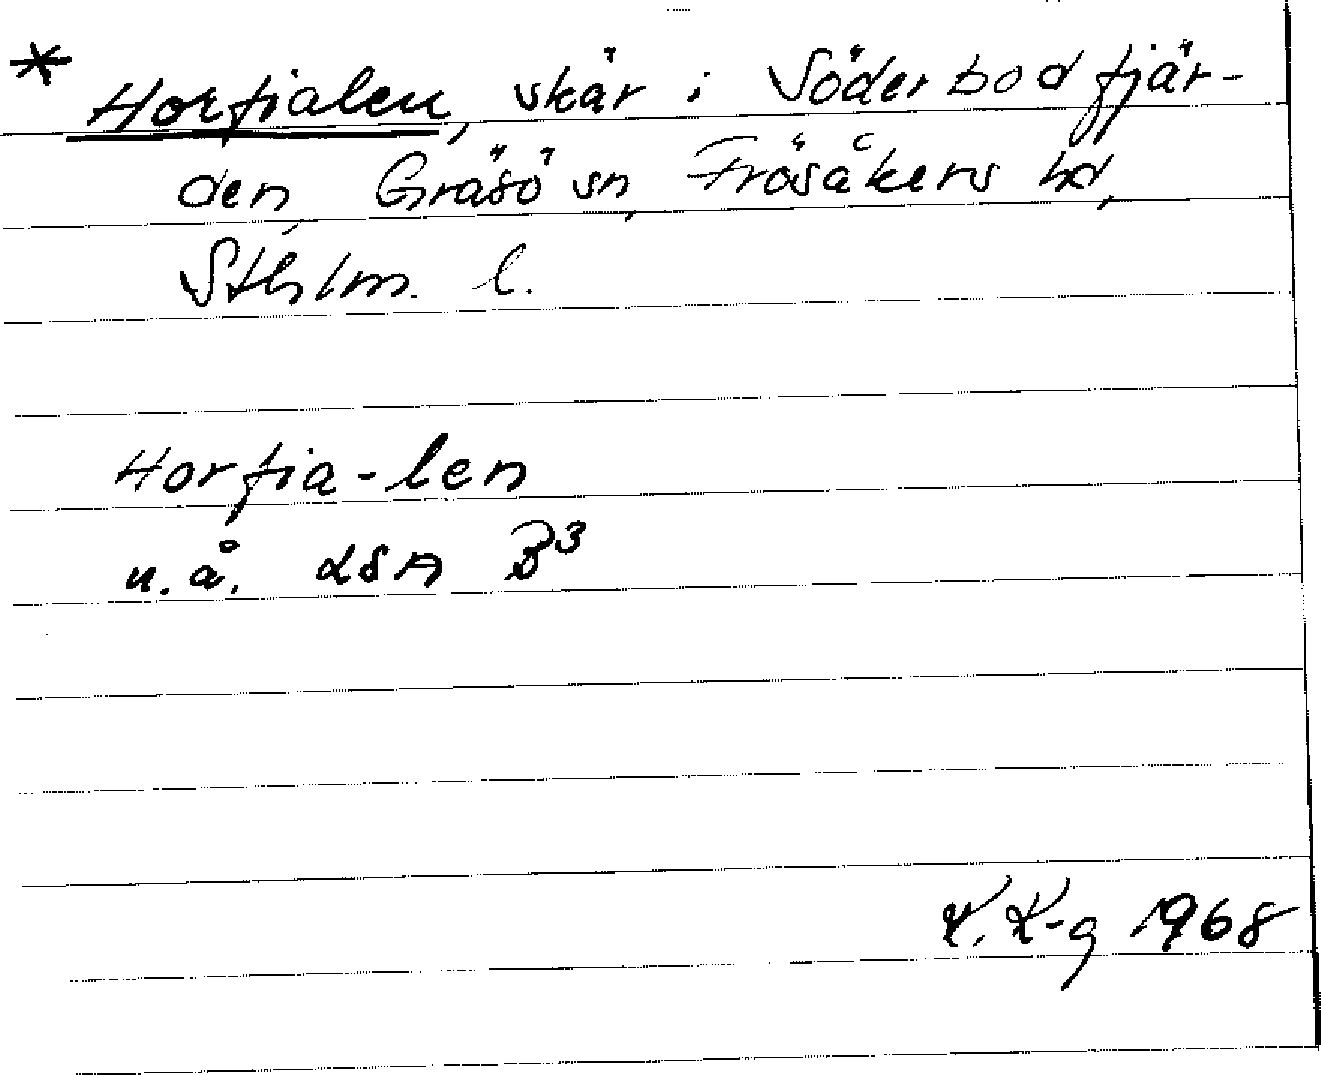 * Horfialen, skär i Söderbodfjär-
den, Gräsö sn, Frösåkers hd,
Sthlm. l.
Horfia-len
u.å. LSA B3
K. K-g 1968